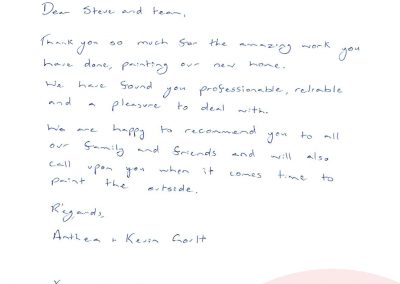 Dear Steve and team,
Thank you so much for the amazing work you
have done, painting our new home.
We have found you professionable, reliable
and a pleasure to deal with.
We are happy to recommend you to all
our family and friends and will also
call upon you when it comes time to
paint the outside.
Regards,
Anthea + Kevin